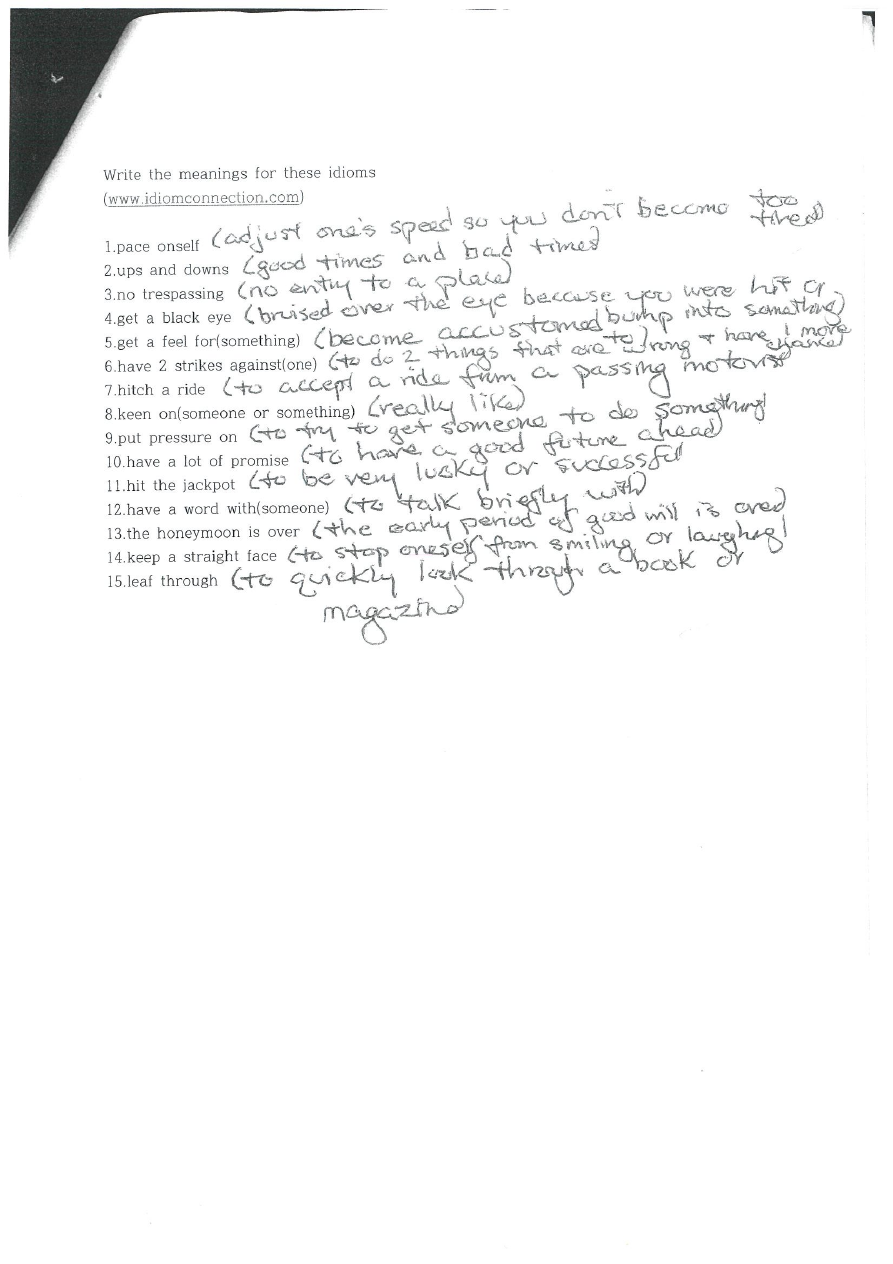 Write the meanings for these idioms
(www.idiomconnection.com)
1.pace onself (adjust one's speed so you don't become too tired)
2.ups and downs (good times and bad times)
3.no trespassing (no entry to a place)
4.get a black eye (bruised over the eye because you were hit or bump into something)
5.get a feel for(something) (become accustomed to)
6.have 2 strikes against(one) (to do 2 things that are wrong + have 1 more chance)
7.hitch a ride (to accept a ride from a passing motorist
8.keen on(someone or something) (really like)
9.put pressure on (to try to get someone to do something)
10.have a lot of promise (to have a good future ahead)
11.hit the jackpot (to be very lucky or successful
12.have a word with(someone) (to talk briefly with)
13.the honeymoon is over (the early period of good will is over)
14.keep a straight face (to stop oneself from smiling or laughing)
15.leaf through (to quickly look through a book or
magazine)